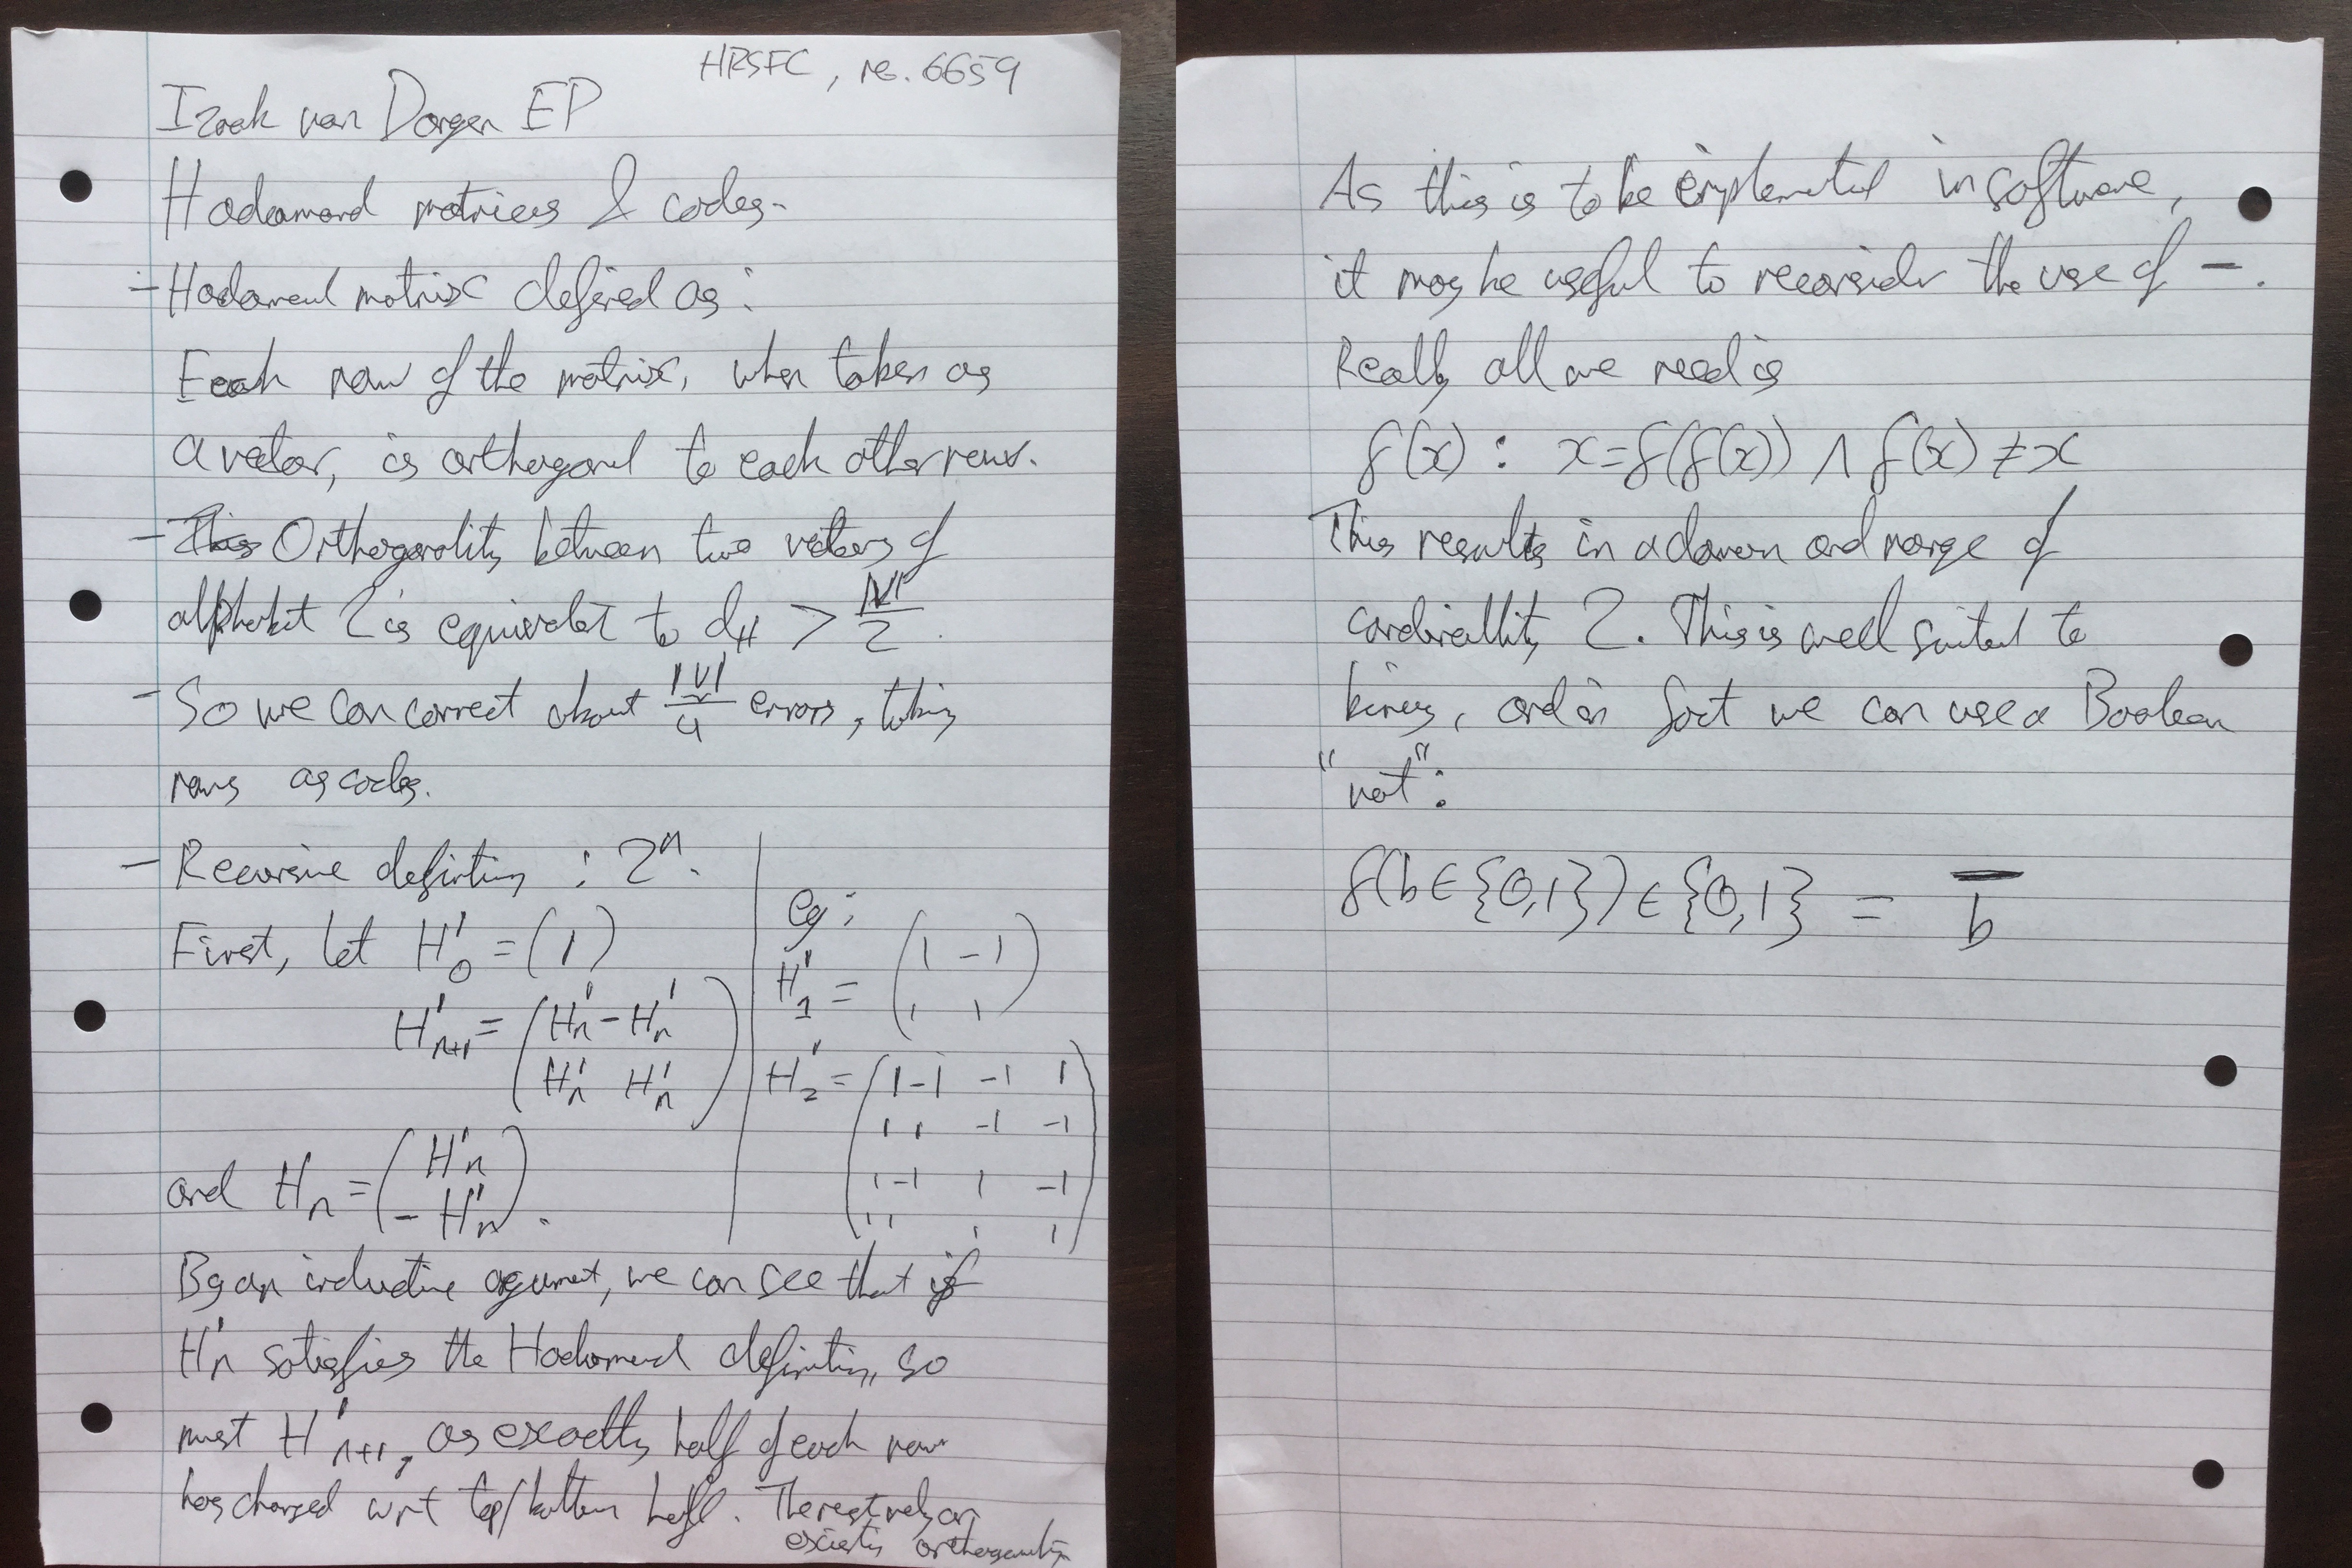 HRSFC, re. 6659
Izaak van Dongen EP
Hadamard matrices & codes.
- Hadamard matrix defined as:
Each row of the matrix, when taken as
a vector, is orthogonal to each other rows.
- This Orthogonality between two vectors of
alphabet 2 is equivalent to dH > |V| / 2
- So we can correct about |V| / 4 errors, taking
rows as codes.
- Recursive definition : 2ⁿ.
First, let H'₀ = (1)
H'ₙ₊₁ = (H'ₙ -H'ₙ
H'ₙ H'ₙ)
and H''ₙ = (H'ₙ
-H'ₙ).
Eg:
H'₁ = (1 -1
1 1)
H'₂ = (1 -1 -1 1
1 1 -1 -1
1 -1 1 -1
1 1 1 1)
By an inductive argument, we can see that if
H'ₙ satisfies the Hadamard definition, so
must H'ₙ₊₁, as exactly half of each row
has changed wrt top/bottom half. The rest rely on
existing orthogonality
As this is to be implemented in software,
it may be useful to reconsider the use of -.
Really all we need is
f(x) : x = f(f(x)) ∧ f(x) ≠ x
This results in a domain and range of
cardinality 2. This is well suited to
binary, and in fact we can use a Boolean
"not".
f(b ∈ {0,1}) ∈ {0,1} = b̅